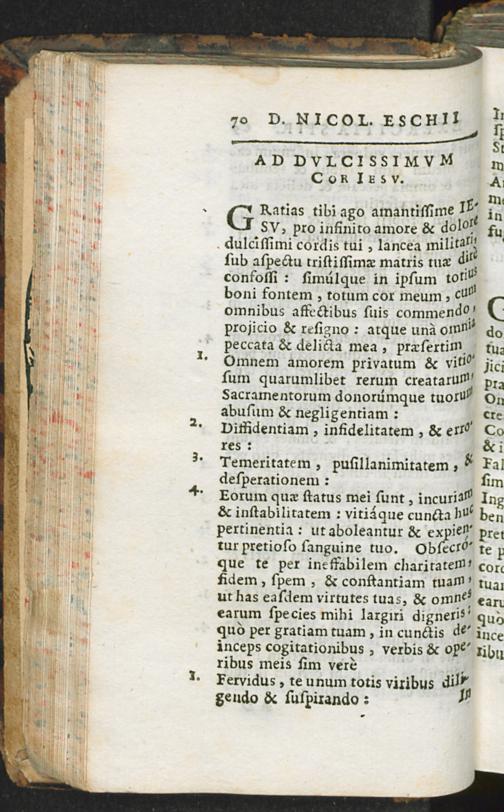 70 D. NICOL. ESCHII
AD DVLCISSIMVM
COR IESV.
GRatias tibi ago amantiſſime IE-
SV, pro infinito amore & dolore
dulciſſimi cordis tui, lancea militaris
ſub aſpectu triſtiſſimæ matris tuæ dirè
confoſſi: ſimúlque in ipſum totius
boni fontem, totum cor meum, cum
omnibus affectibus ſuis commendo,
projicio & reſigno: atque unà omnia
peccata & delicta mea, præſertim
1. Omnem amorem privatum & vitio-
ſum quarumlibet rerum creatarum,
Sacramentorum donorúmque tuorum
abuſum & negligentiam:
2. Diffidentiam, infidelitatem, & erro-
res:
3. Temeritatem, puſillanimitatem, &
deſperationem:
4. Eorum quæ ſtatus mei ſunt, incuriam
& inſtabilitatem: vitiáque cuncta huc
pertinentia: ut aboleantur & expien-
tur pretioſo ſanguine tuo. Obſecró-
que te per ineffabilem charitatem,
fidem, ſpem, & conſtantiam tuam,
ut has eaſdem virtutes tuas, & omnes
earum ſpecies mihi largiri digneris:
quò per gratiam tuam, in cunctis de-
inceps cogitationibus, verbis & ope-
ribus meis ſim verè
1. Fervidus, te unum totis viribus dili-
gendo & ſuſpirando:
In